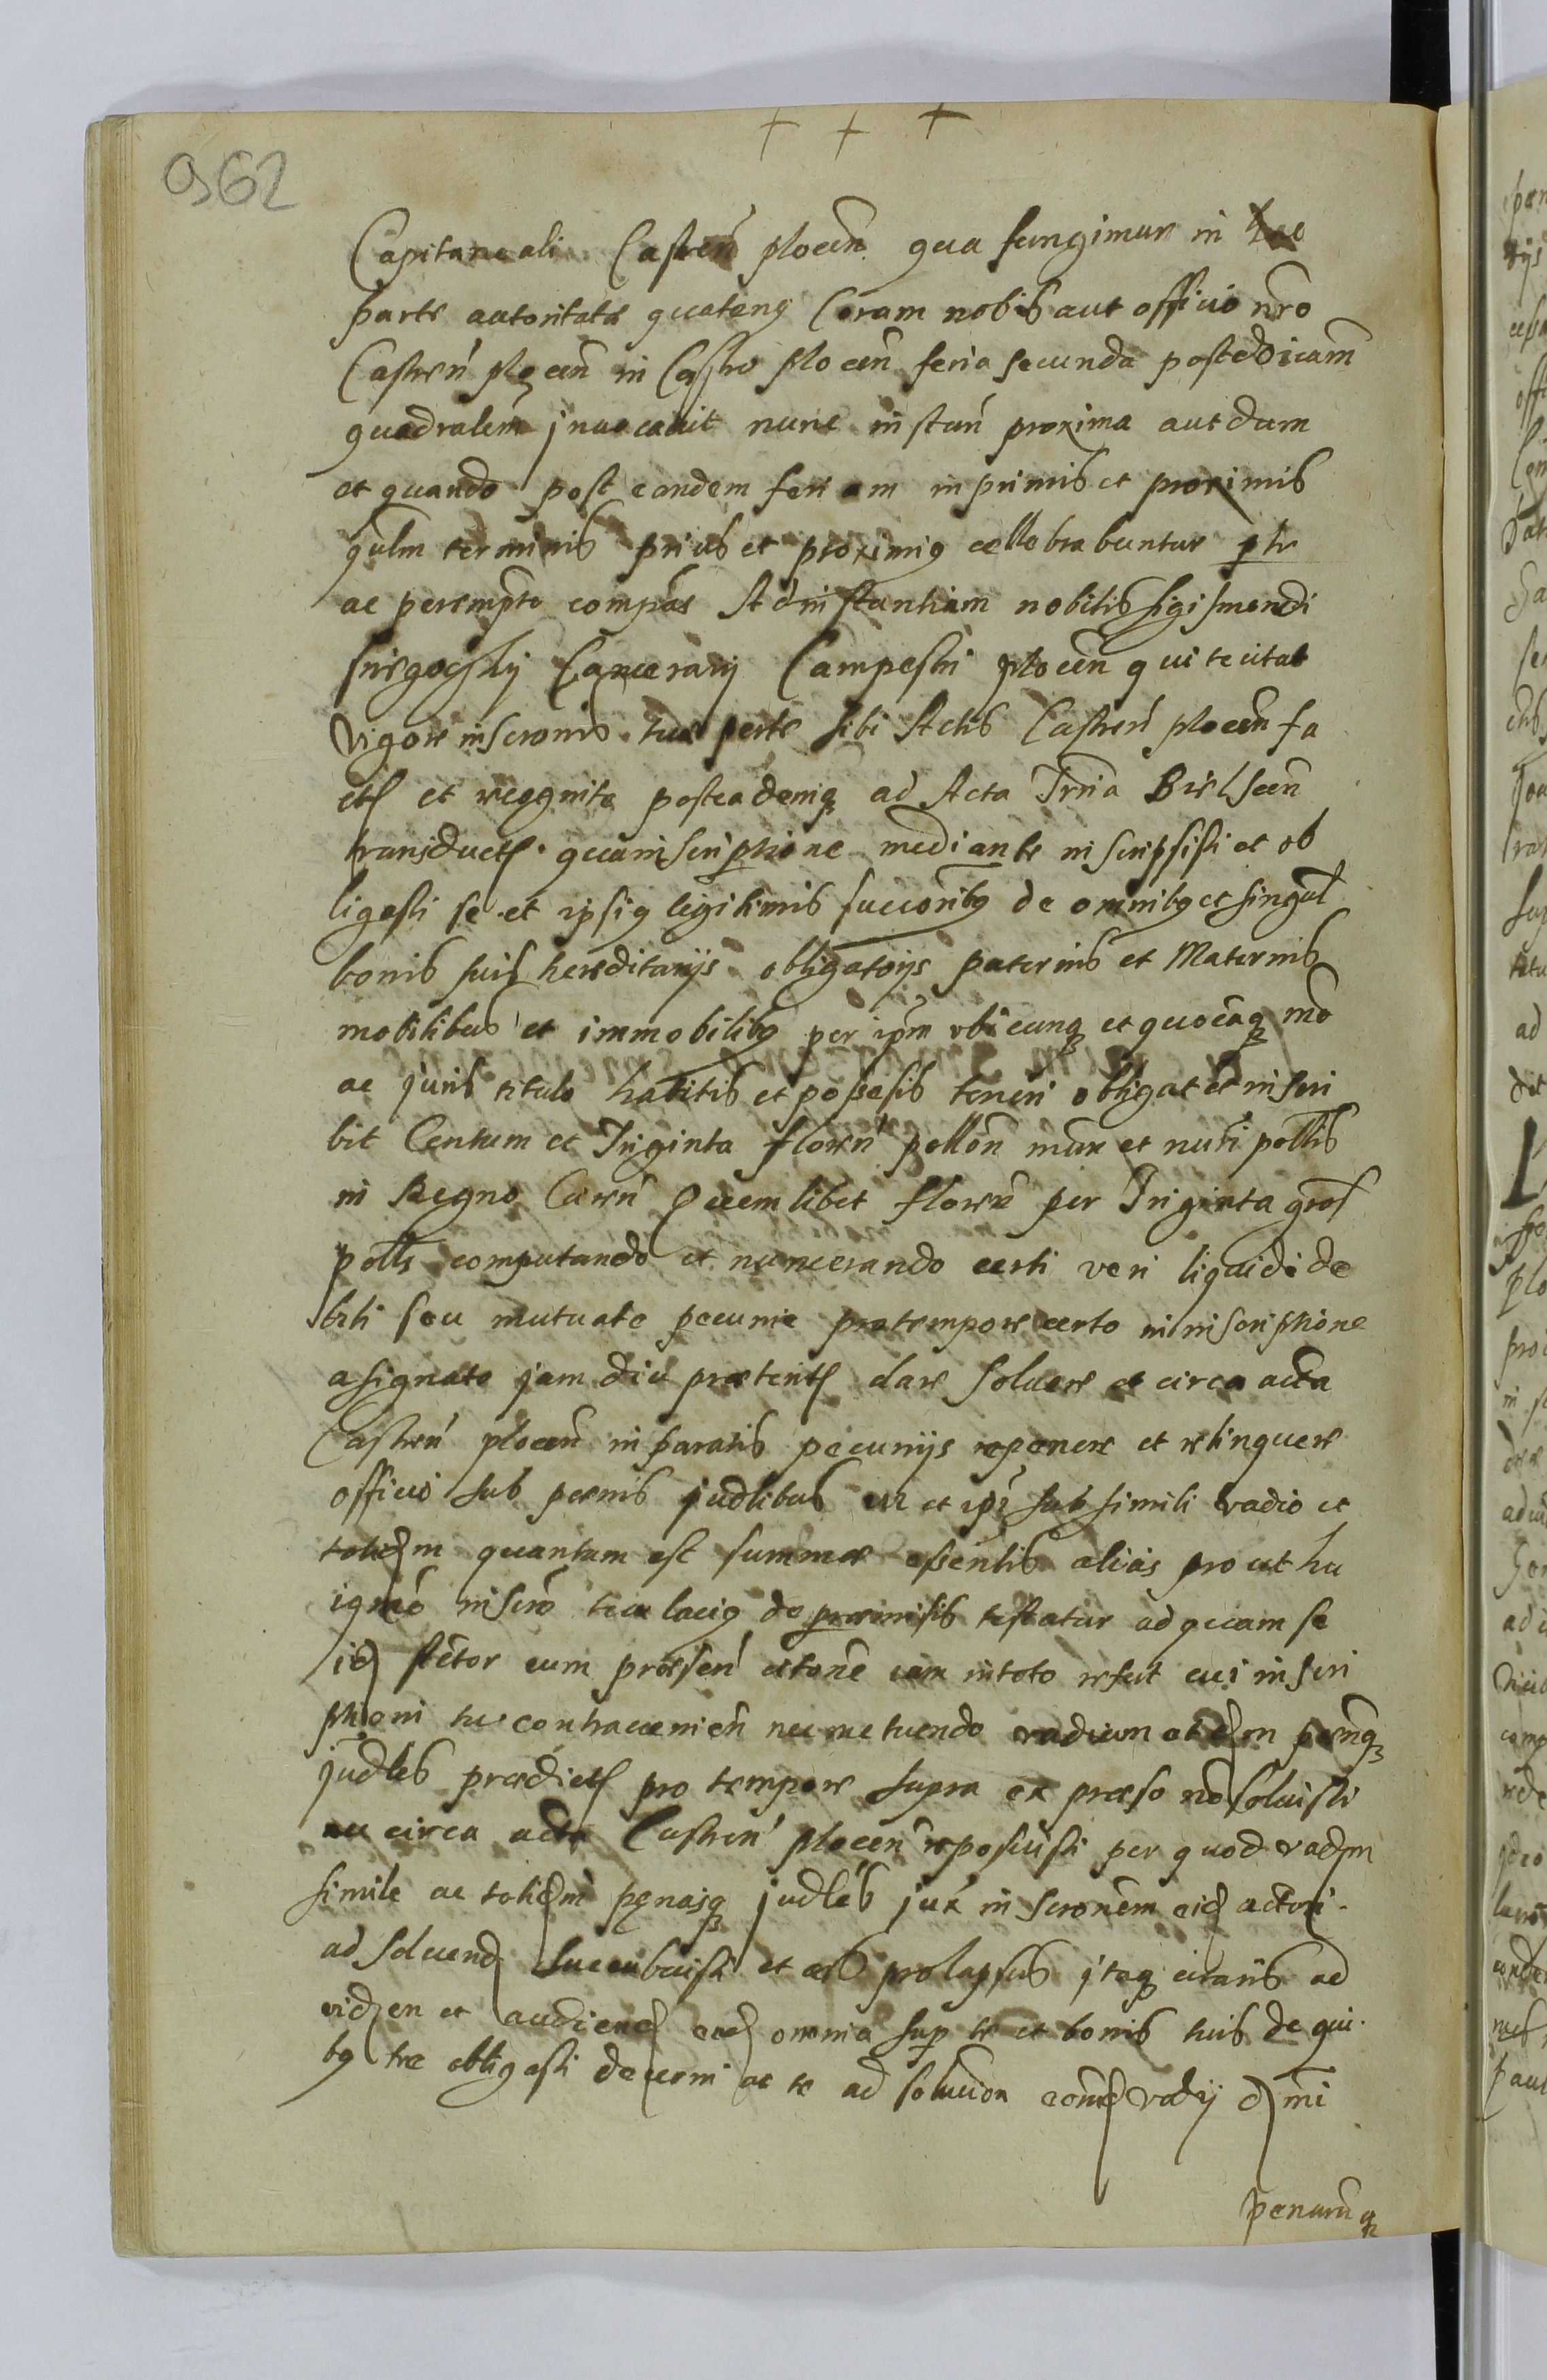 962
Capitaneali Castren̄ plocen̄ qua fungimur in hac
parte autoritate quatenꝰ Coram nobis aut officio nr̄o
Castren̄ plocen̄ in Castro plocen̄ feria secunda post d̄nicam
quadralem̄ jnuocauit nunc instan̄ proxima aut dum
et quando post eandem feriam in primis et proximis
qulm terminis prius et proximiꝰ cellebrabuntur ꝑtr
ac perempte̅ compas Ad instantiam nobilis Sigismundi
Camerarij Campestri plocen̄ qui te citat
Vigore inscronis tuæ perte sibi Actis Castren̄ plocen̄ fa
ctę et recognitę posteadeniqꝫ ad Acta Trr̄ia Bielscen̄
transductę quainscriptione mediante inscripsisti et ob
ligasti se et ipsiꝰ legitimis succoribꝰ de omnibꝰ et singul
bonis suis hereditarijs obligatorijs paternis et Maternis
mobilibus et immobilibꝰ per ipm̄ vbicunqꝫ et quocūqꝫ mō
ac juris titulo habitis et possesis teneri obligat et inscri
bit Centum et Triginta floren̄ pollon̄ mon et nūi pollis
in Regno Curen̄ Quemlibet floren per Triginta gros
polls computando et numerando certi veri liquidi de
biti seu mutuate pecunie protempore certo in inscriptione
asignato jam diu præteritę dare soluere et circa acta
Castren̄ plocen̄ in paratis pecunijs reponere et relinquere
officio sub pænis judlibus et ipī sub simili vadio et
totidem quantum est summæ essentis alias pro ut hu
iqmō inscrō tua laciꝰ de præmisis testatur ad quam se
id Actor cum præsen̄ citone iam intoto refert cui inscri
ptioni tu contraueniēn nec metuendo vadium at dm̄ pænaqꝫ
judles prædictę pro tempore supra expræso nō soluisti
nec circa acta Castren̄ plocen̄ reposuisti per quod vadm
simile ac totidm pęnasqꝫ judles jux inscronem eid actori
ad soluend succubuisti et es prolapsus jtaqꝫ citaris ad
viden et audiend ead omnia sup te et bonis tuis de qui
bꝰ te obligasti decerni ac te ad solucion eound vadij dm̄i
penarūqꝫ